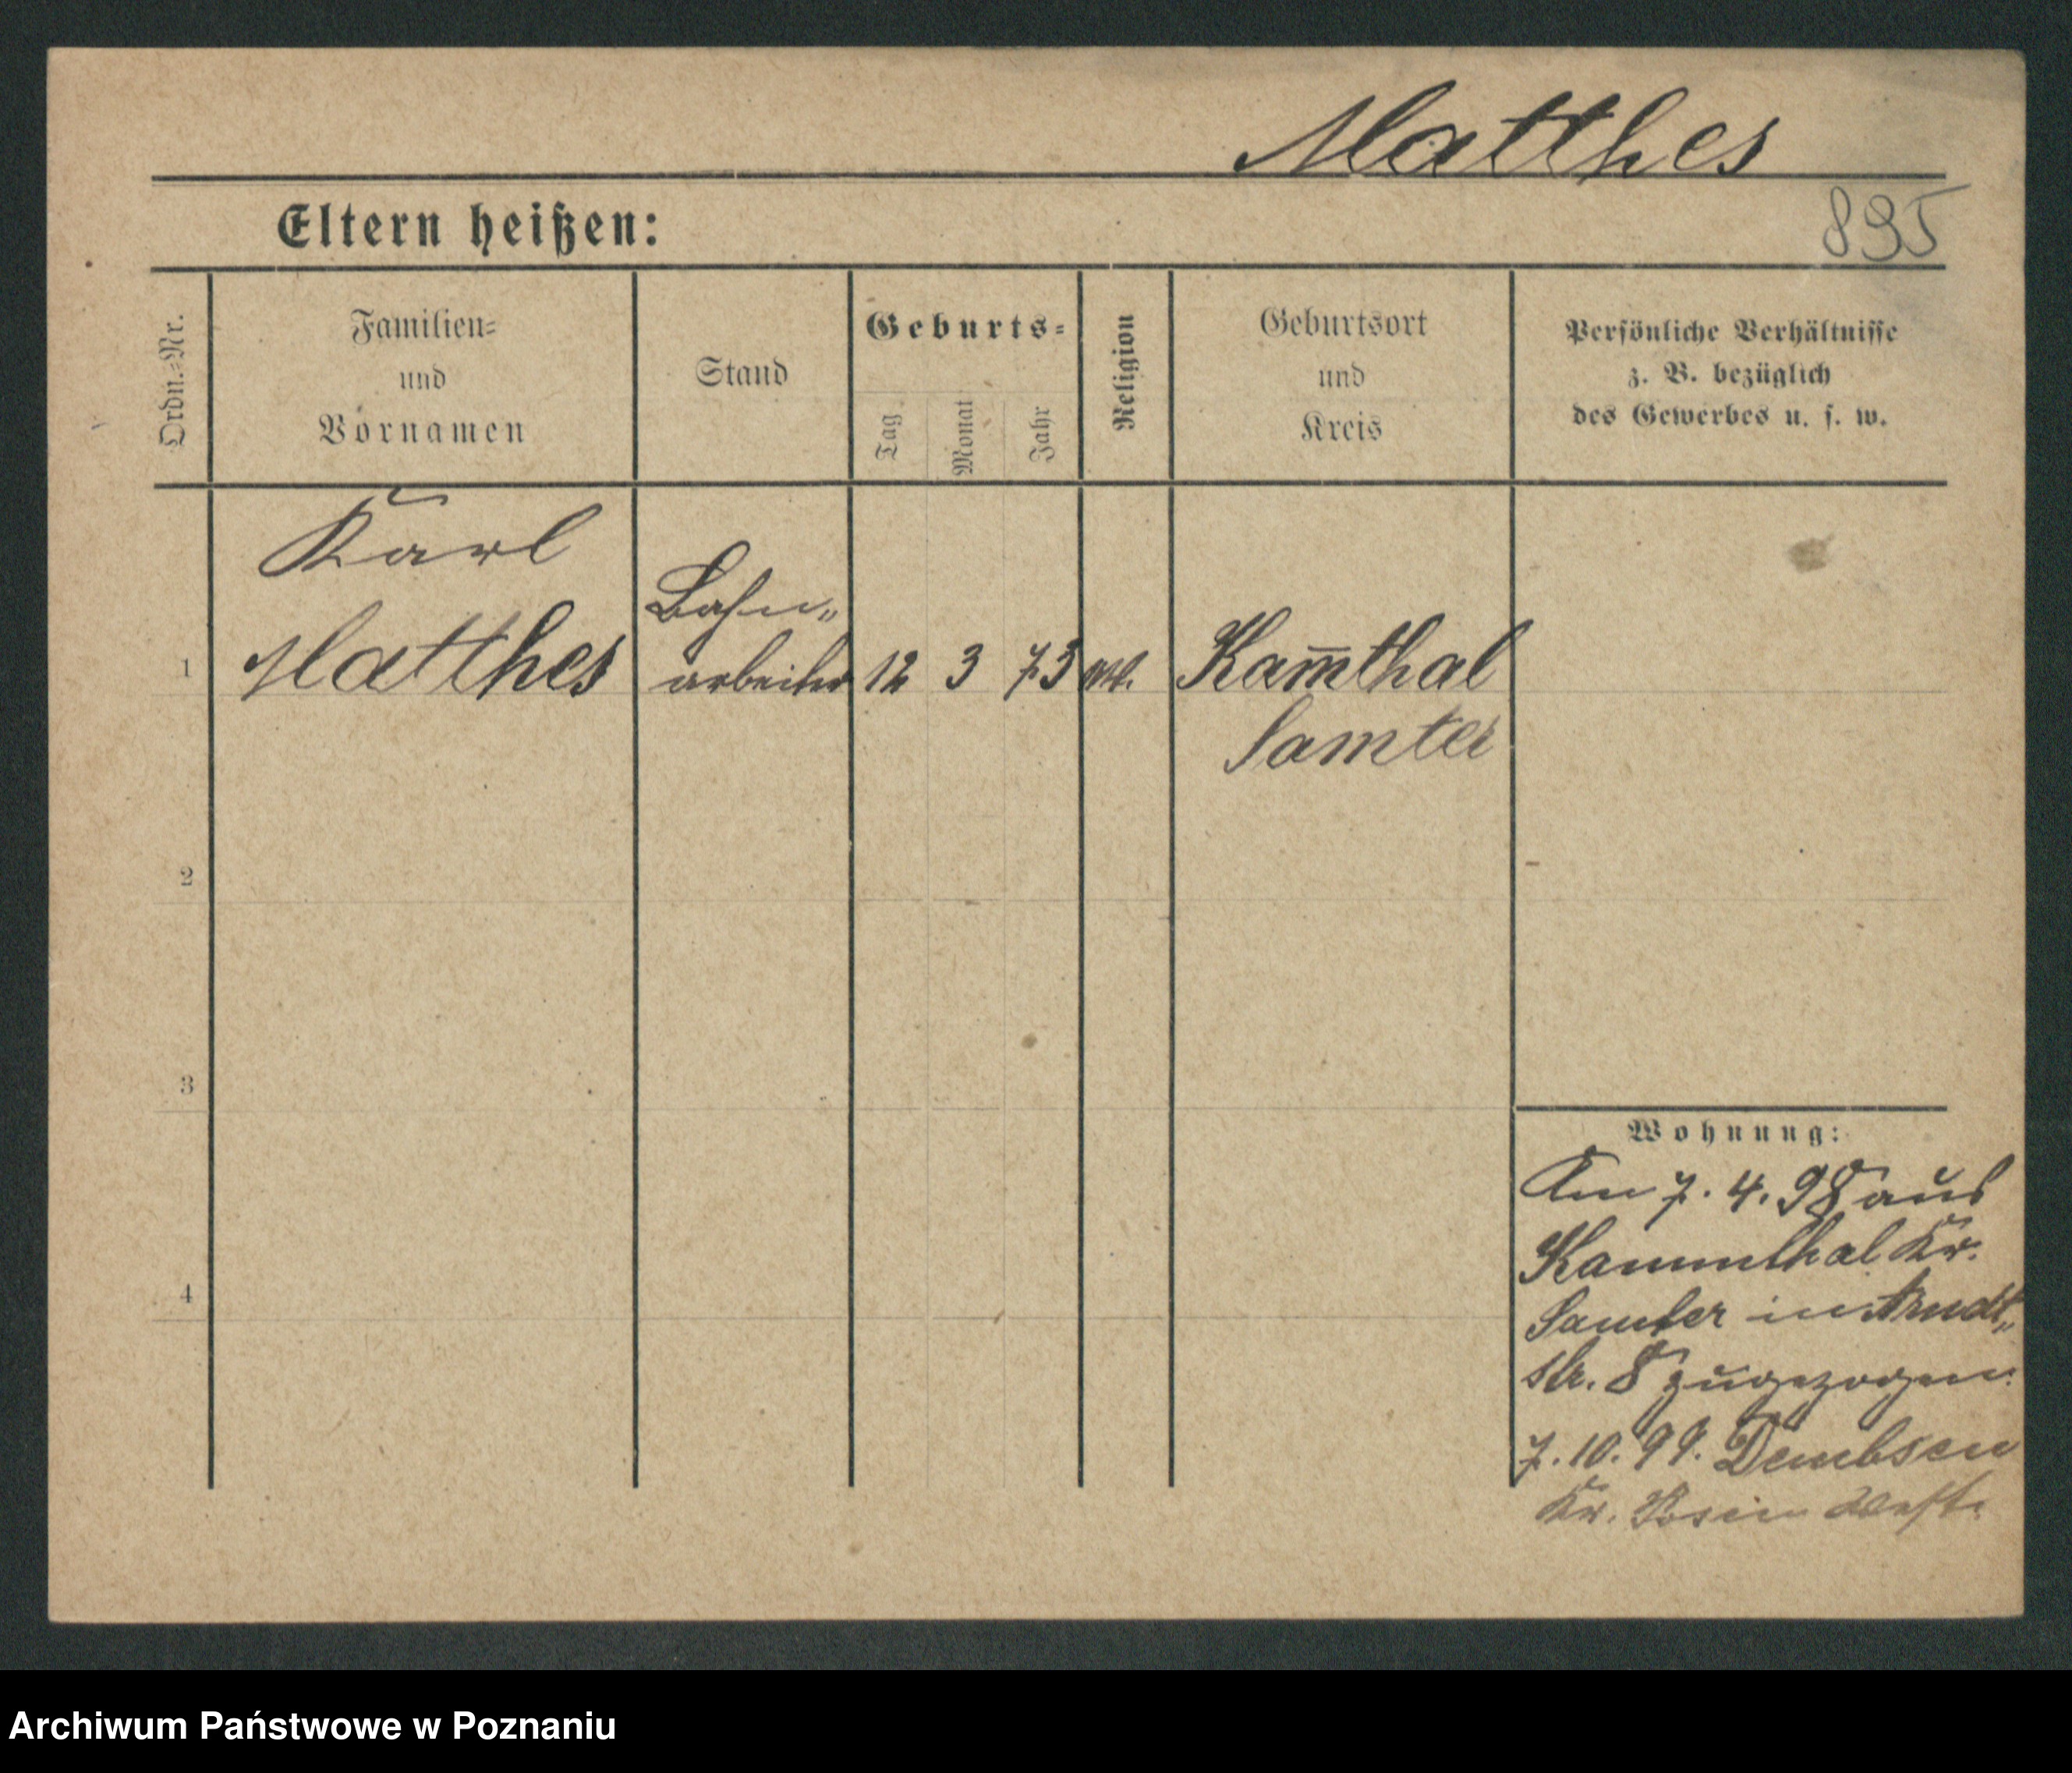 Matthes
Eltern heißen:
895
Ordn.-Nr.
Familien-
und
Vornamen
Stand
Geburts-
Tag
Monat
Jahr
Religion
Geburtsort
und
Kreis
Persönliche Verhältnisse
z. B. bezüglich
des Gewerbes u. s. w.
Karl
Matthes
Bahn„
arbeiter
1
12 3 73
Kam̅thal
Samter
2
3
4
Wohnung:
Am 7. 4. 98 aus
Kammthal Kr.
Samter in Arndt„
str. 8 zugezogen.
7. 10. 99. Dembsen
Kr. Posen West.
Archiwum Państwowe w Poznaniu